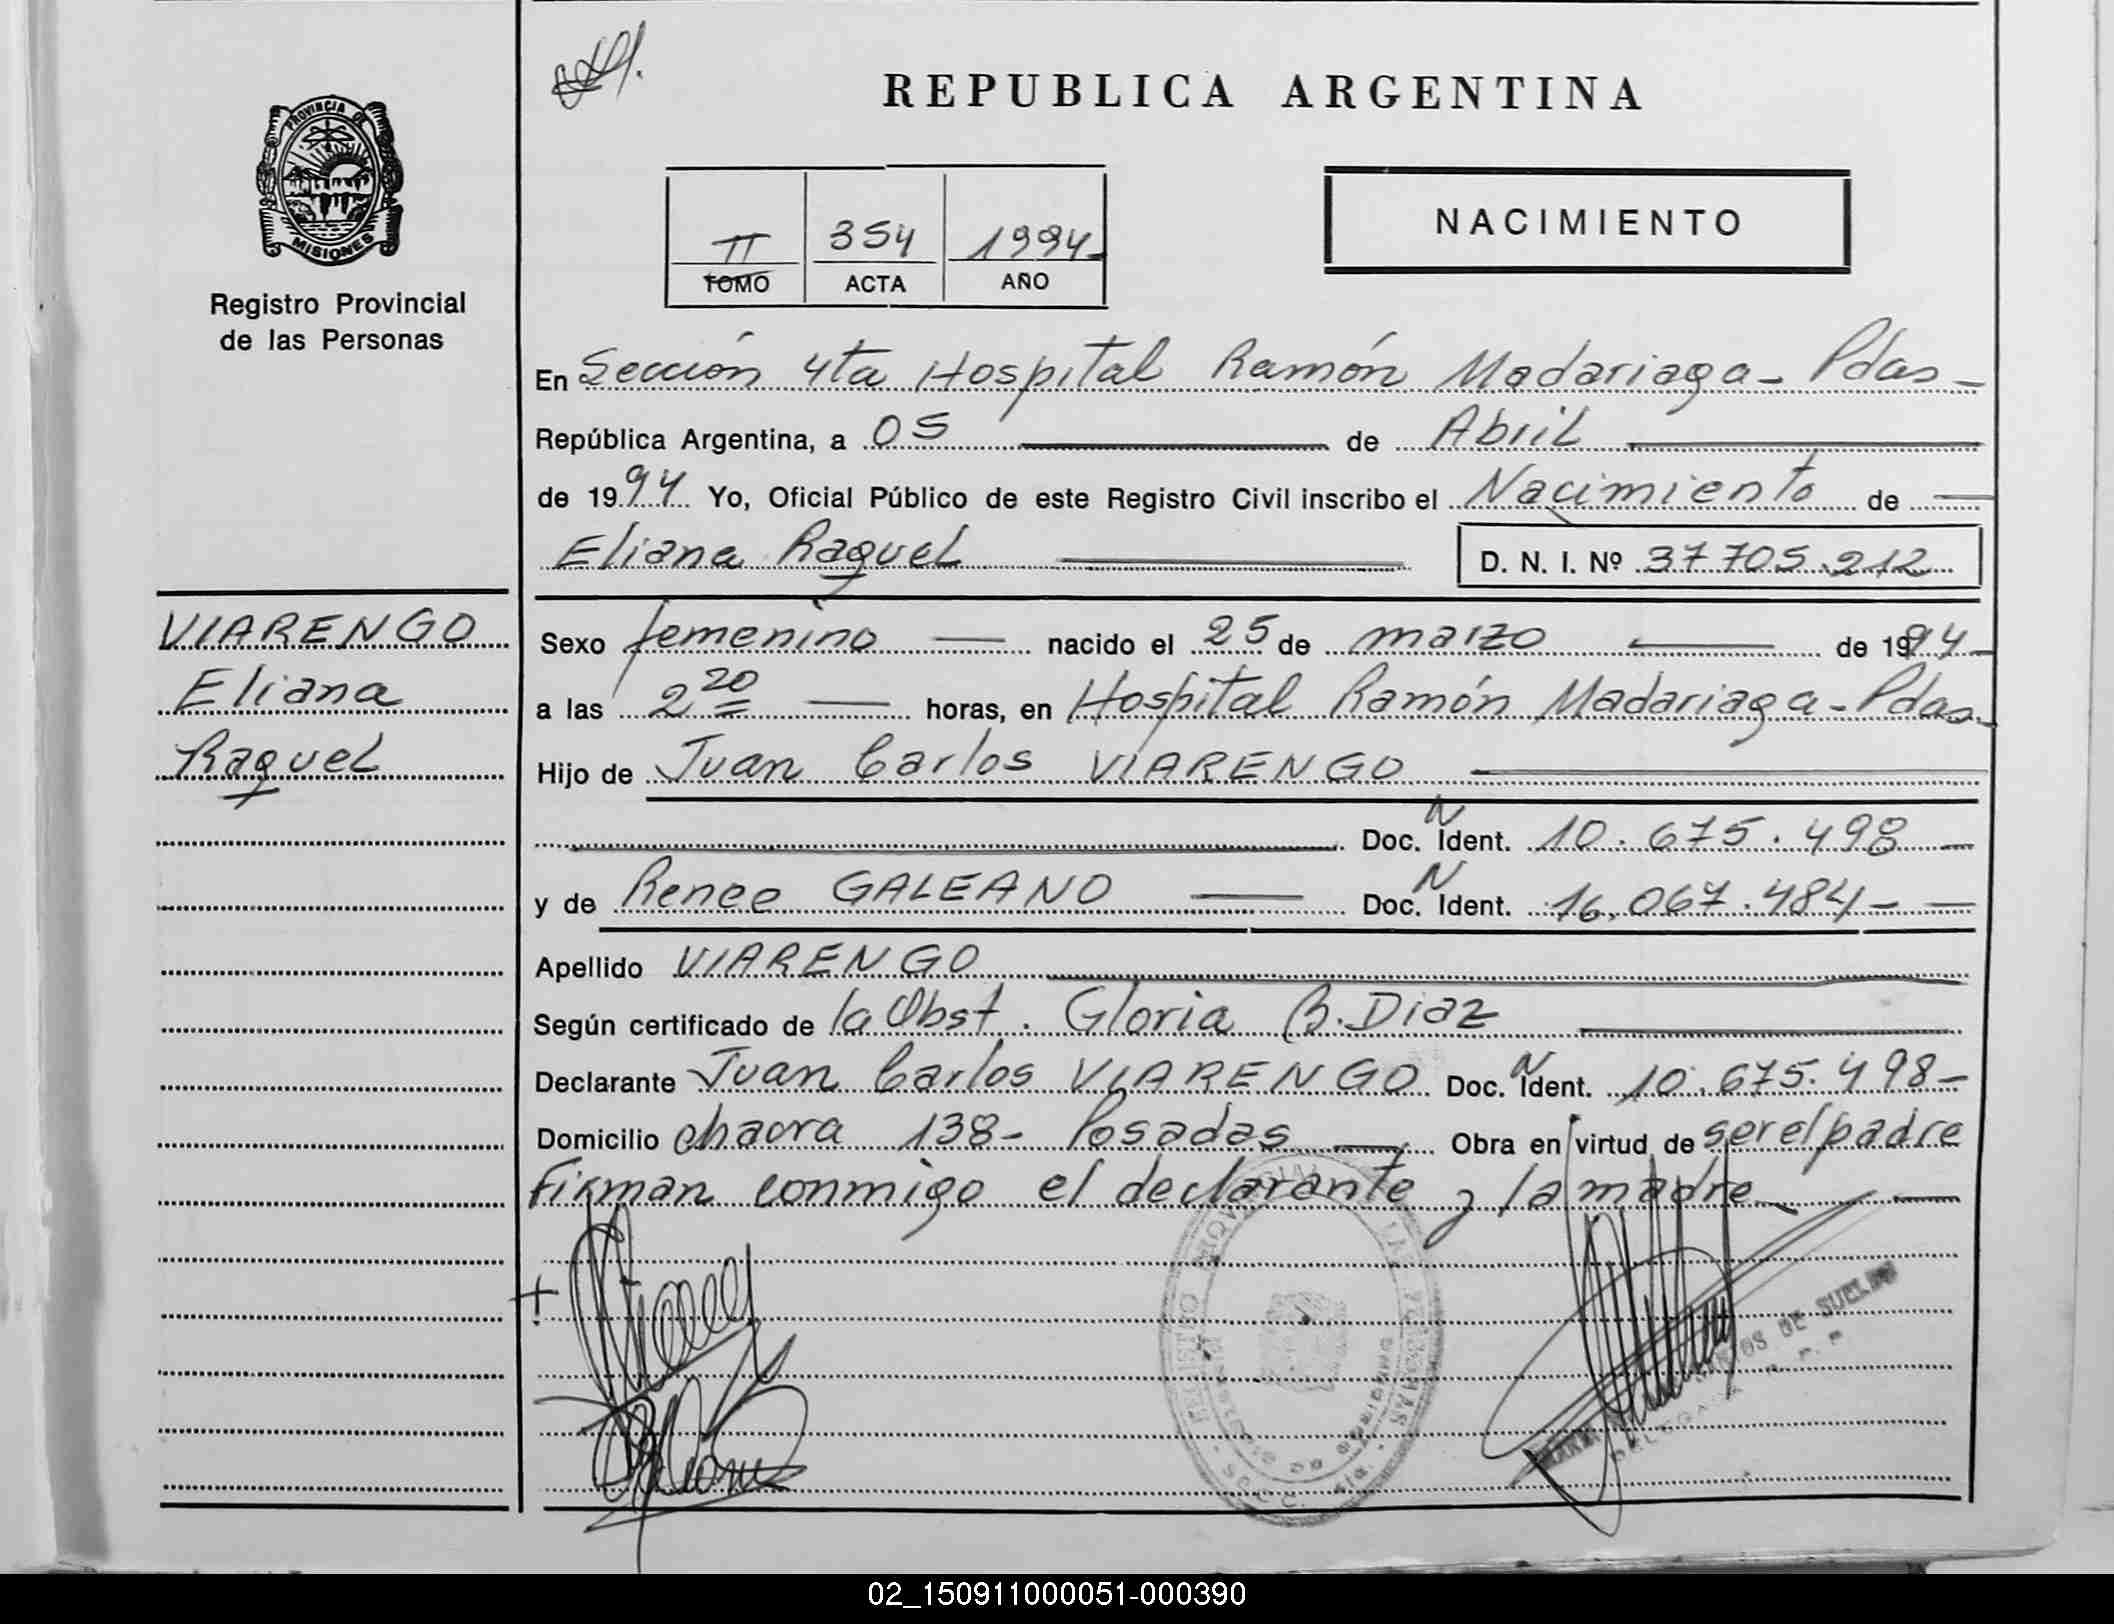 REPUBLICA ARGENTINA
PROVINCIA DE
MISIONES
Registro Provincial
de las Personas
II 354 1994
TOMO ACTA AÑO
NACIMIENTO
En Sección 4ta Hospital Ramón Madariaga - Pdas -
República Argentina, a 05 de Abril
de 1994 Yo, Oficial Público de este Registro Civil inscribo el Nacimiento de
Eliana Raquel D. N. I. Nº 37705.212
VIARENGO
Eliana
Raquel
Sexo femenino nacido el 25 de marzo de 1994
a las 2 20 horas, en Hospital Ramón Madariaga - Pdas -
Hijo de Juan Carlos VIARENGO
Doc. N Ident. 10.675.498
y de Renee GALEANO Doc. N Ident. 16.067.484 -
Apellido VIARENGO
Según certificado de la Obst. Gloria B. Diaz
Declarante Juan Carlos VIARENGO Doc. N Ident. 10.675.498 -
Domicilio chacra 138 - Posadas Obra en virtud de ser el padre
Firman conmigo el declarante y la madre
REGISTRO PROVINCIAL LAS PERSONAS
DE SUELDO
DELEGADA
02_150911000051-000390